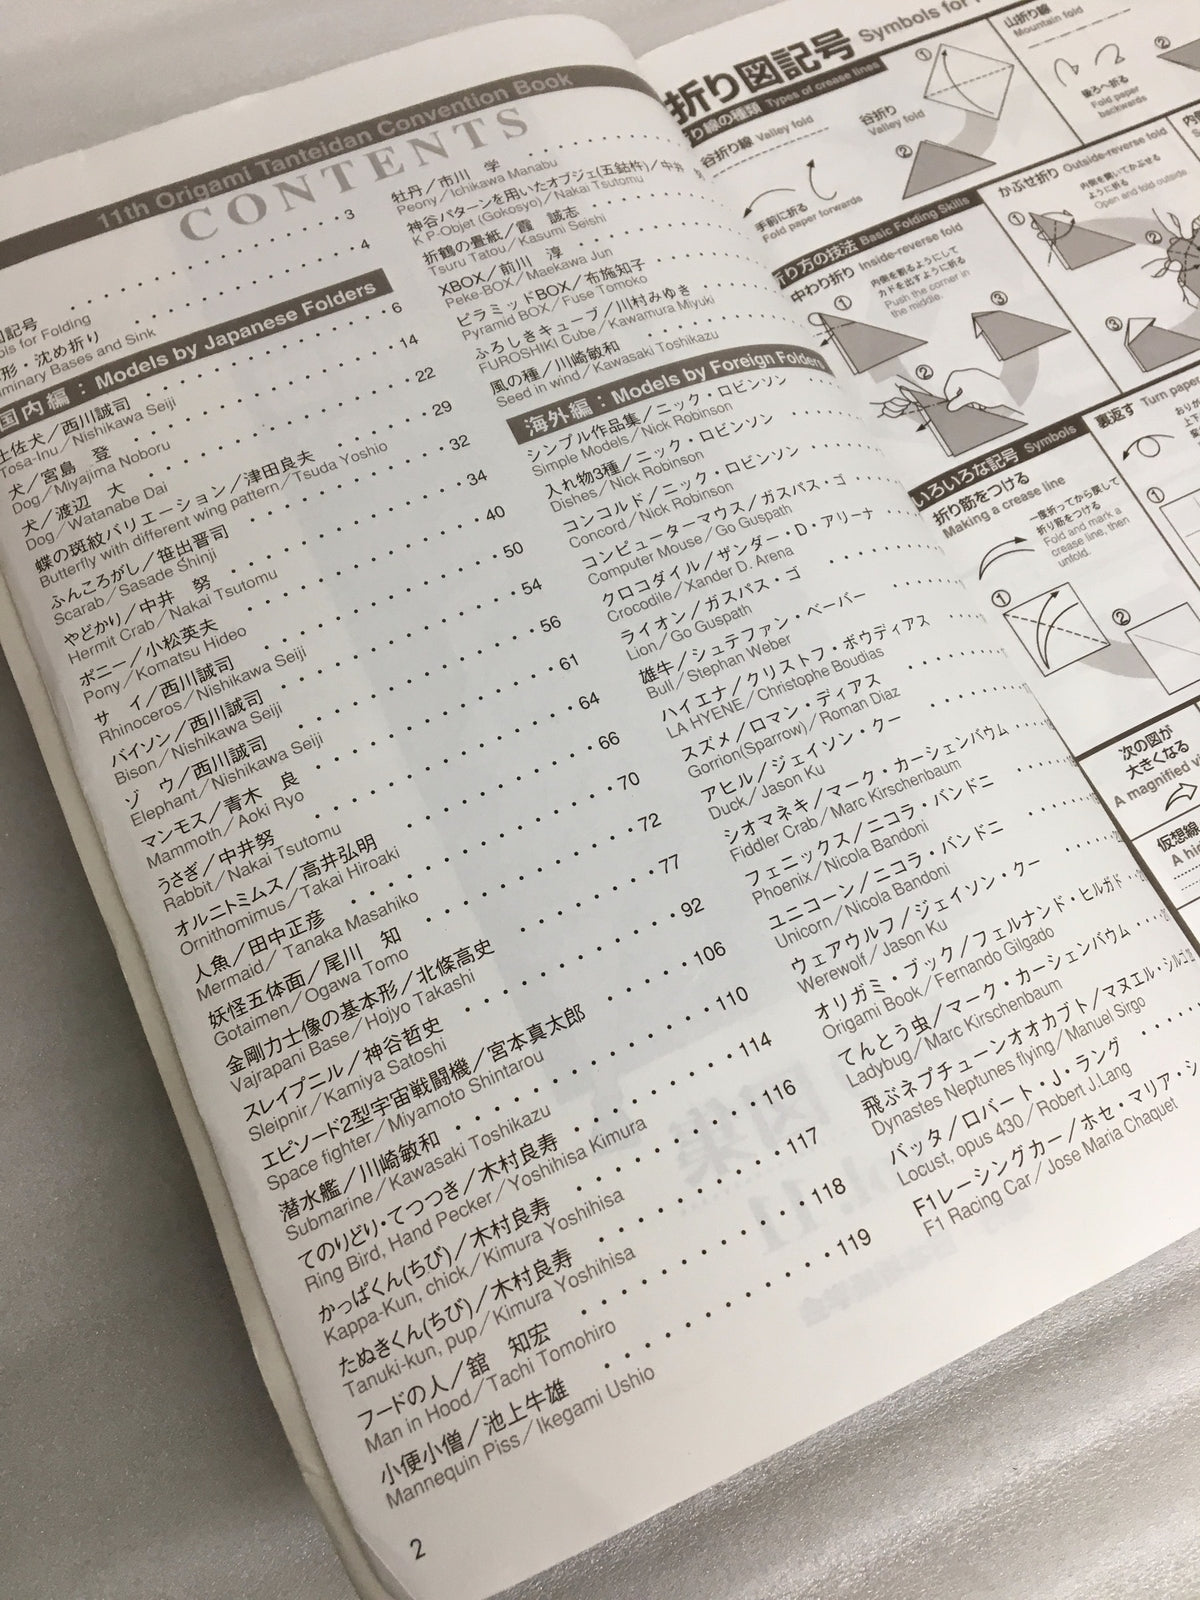 11th Origami Tanteidan Convention Book
CONTENTS
記号 3
for Folding
形・沈め折り 4
Bases and Sink
国内編：Models by Japanese Folders
土佐犬／西川誠司 6
Tosa-Inu／Nishikawa Seiji
犬／宮島 登 14
Dog／Miyajima Noboru
犬／渡辺 大 22
Dog／Watanabe Dai
蝶の斑紋バリエーション／津田良夫 29
Butterfly with different wing pattern／Tsuda Yoshio
ふんころがし／笹出晋司 32
Scarab／Sasade Shinji
やどかり／中井 努 34
Hermit Crab／Nakai Tsutomu
ポニー／小松英夫 40
Pony／Komatsu Hideo
サ イ／西川誠司 50
Rhinoceros／Nishikawa Seiji
バイソン／西川誠司 54
Bison／Nishikawa Seiji
ゾ ウ／西川誠司 56
Elephant／Nishikawa Seiji
マンモス／青木 良 61
Mammoth／Aoki Ryo
うさぎ／中井努 64
Rabbit／Nakai Tsutomu
オルニトミムス／高井弘明 66
Ornithomimus／Takai Hiroaki
人魚／田中正彦 70
Mermaid／Tanaka Masahiko
妖怪五体面／尾川 知 72
Gotaimen／Ogawa Tomo
金剛力士像の基本形／北條高史 77
Vajrapani Base／Hojyo Takashi
スレイプニル／神谷哲史 92
Sleipnir／Kamiya Satoshi
エピソード2型宇宙戦闘機／宮本真太郎 106
Space fighter／Miyamoto Shintarou
潜水艦／川崎敏和 110
Submarine／Kawasaki Toshikazu
てのりどり・てつつき／木村良寿 114
Ring Bird, Hand Pecker／Yoshihisa Kimura
かっぱくん(ちび)／木村良寿 116
Kappa-Kun, chick／Kimura Yoshihisa
たぬきくん(ちび)／木村良寿 117
Tanuki-kun, pup／Kimura Yoshihisa
フードの人／舘 知宏 118
Man in Hood／Tachi Tomohiro
小便小僧／池上牛雄 119
Mannequin Piss／Ikegami Ushio
2
牡丹／市川 学
Peony／Ichikawa Manabu
神谷パターンを用いたオブジェ(五鈷杵)／中井
K P-Objet (Gokosyo)／Nakai Tsutomu
折鶴の畳紙／霞 誠志
Tsuru Tatou／Kasumi Seishi
XBOX／前川 淳
Peke-BOX／Maekawa Jun
ピラミッドBOX／布施知子
Pyramid BOX／Fuse Tomoko
ふろしきキューブ／川村みゆき
FUROSHIKI Cube／Kawamura Miyuki
風の種／川崎敏和
Seed in wind／Kawasaki Toshikazu
海外編：Models by Foreign Folders
シンプル作品集／ニック・ロビンソン
Simple Models／Nick Robinson
入れ物3種／ニック・ロビンソン
Dishes／Nick Robinson
コンコルド／ニック・ロビンソン
Concord／Nick Robinson
コンピューターマウス／ガスパス・ゴ
Computer Mouse／Go Guspath
クロコダイル／ザンダー・D・アリーナ
Crocodile／Xander D. Arena
ライオン／ガスパス・ゴ
Lion／Go Guspath
雄牛／シュテファン・ペーバー
Bull／Stephan Weber
ハイエナ／クリストフ・ボウディアス
LA HYENE／Christophe Boudias
スズメ／ロマン・ディアス
Gorrion(Sparrow)／Roman Diaz
アヒル／ジェイソン・クー
Duck／Jason Ku
シオマネキ／マーク・カーシェンバウム
Fiddler Crab／Marc Kirschenbaum
フェニックス／ニコラ・バンドニ
Phoenix／Nicola Bandoni
ユニコーン／ニコラ・バンドニ
Unicorn／Nicola Bandoni
ウェアウルフ／ジェイソン・クー
Werewolf／Jason Ku
オリガミ・ブック／フェルナンド・ヒルガド
Origami Book／Fernando Gilgado
てんとう虫／マーク・カーシェンバウム
Ladybug／Marc Kirschenbaum
飛ぶネプチューンオオカブト／マヌエル・シルゴ
Dynastes Neptunes flying／Manuel Sirgo
バッタ／ロバート・J・ラング
Locust, opus 430／Robert J.Lang
F1レーシングカー／ホセ・マリア・シ
F1 Racing Car／Jose Maria Chaquet
折り図記号 Symbols for
り線の種類 Types of crease lines
谷折り線 Valley fold
手前に折る
Fold paper forwards
谷折り
Valley fold
①
②
山折り線
Mountain fold
後ろへ折る
Fold paper
backwards
②
折り方の技法 Basic Folding Skills
中わり折り Inside-reverse fold
内側を割るようにして
カドを出すように折る
Push the corner in
the middle.
①
②
③
かぶせ折り Outside-reverse fold
内側を開いてかぶせる
ように折る
Open and fold outside
①
②
③
いろいろな記号 Symbols
折り筋をつける
Making a crease line
一度折ってから戻して
折り筋をつける
Fold and mark a
crease line, then
unfold.
①
②
裏返す Turn paper
①
次の図が
大きくなる
A magnified
仮想線